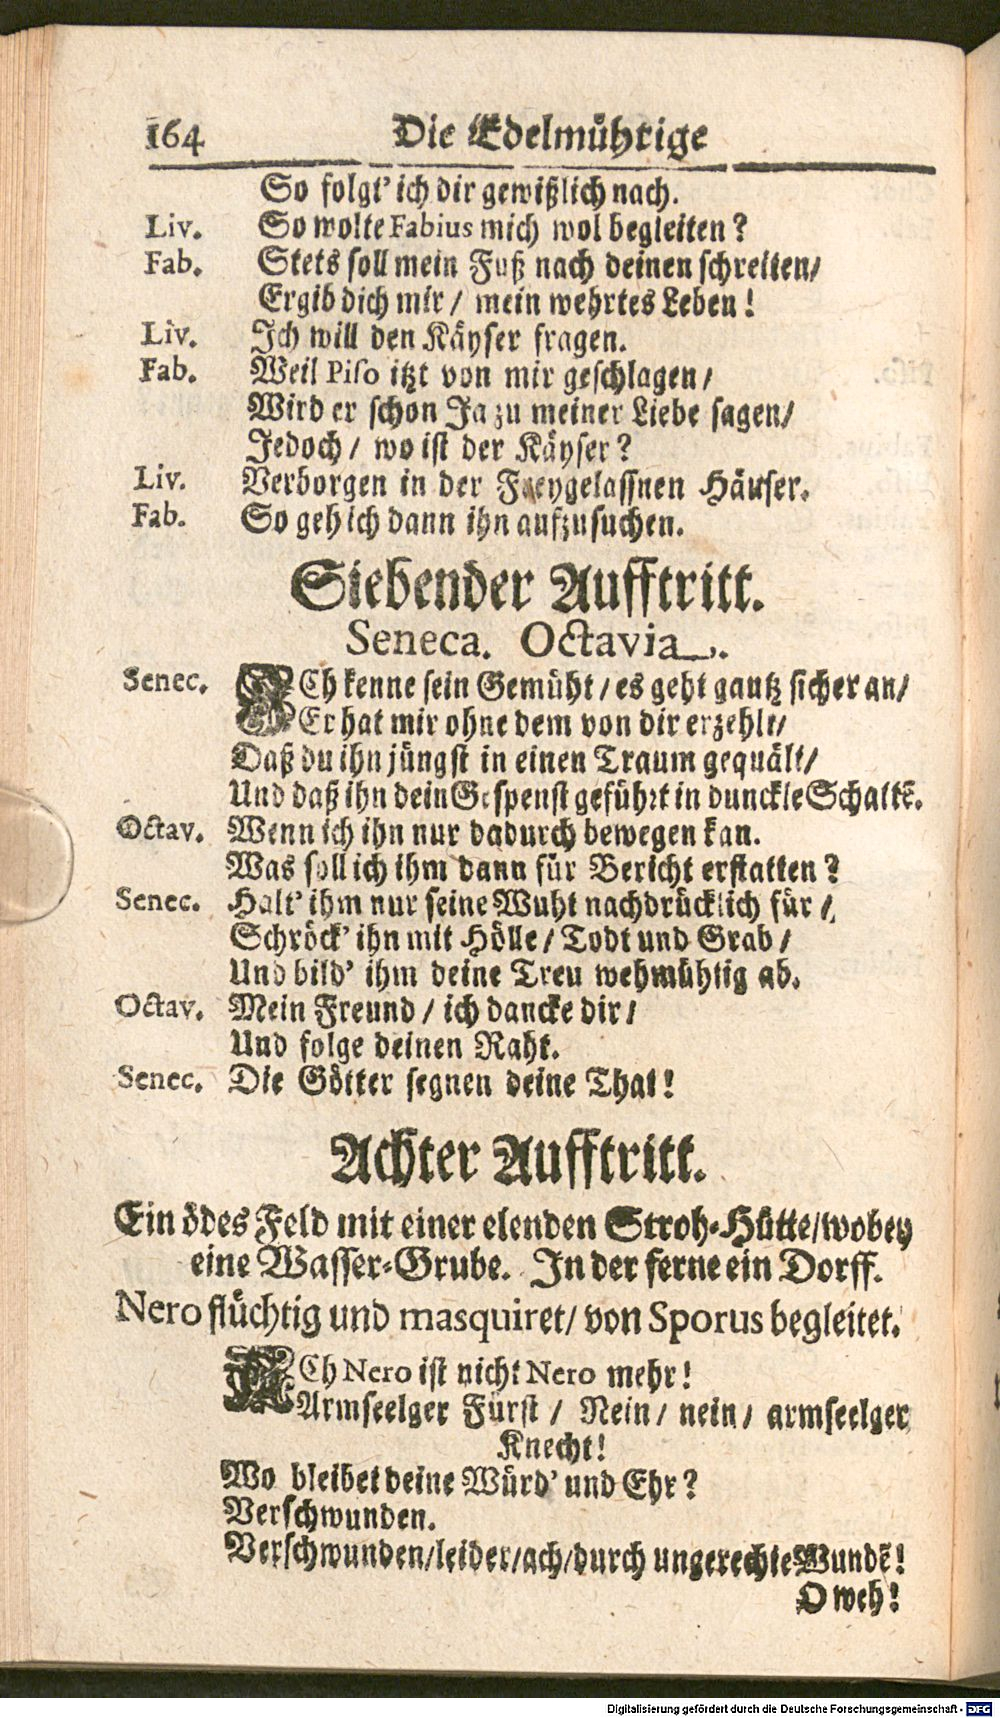 164 Die Edelmühtige
So folgt' ich dir gewißlich nach.
Liv. So wolte Fabius mich wol begleiten?
Fab. Stets soll mein Fuß nach deinen schreiten/
Ergib dich mir / mein wehrtes Leben!
Liv. Ich will den Käyser fragen.
Fab. Weil Piso itzt von mir geschlagen/
Wird er schon Ja zu meiner Liebe sagen/
Jedoch / wo ist der Käyser?
Liv. Verborgen in der Freygelassnen Häuser.
Fab. So geh ich dann ihn aufzusuchen.
Siebender Aufftritt.
Seneca. Octavia.
Senec. ICh kenne sein Gemüht / es geht gantz sicher an/
Er hat mir ohne dem von dir erzehlt/
Daß du ihn jüngst in einen Traum gequält/
Und daß ihn dein Gespenst geführt in dunckle Schattē.
Octav. Wenn ich ihn nur dadurch bewegen kan.
Was soll ich ihm dann für Bericht erstatten?
Senec. Halt' ihm nur seine Wuht nachdrücklich für /
Schröck' ihn mit Hölle / Todt und Grab /
Und bild' ihm deine Treu wehmühtig ab.
Octav. Mein Freund / ich dancke dir /
Und folge deinen Raht.
Senec. Die Götter segnen deine That!
Achter Aufftritt.
Ein ödes Feld mit einer elenden Stroh-Hütte/wobey
eine Wasser-Grube. In der ferne ein Dorff.
Nero flüchtig und masquiret/ von Sporus begleitet.
ACh Nero ist nicht Nero mehr!
Armseelger Fürst / Nein / nein / armseelger
Knecht!
Wo bleibet deine Würd' und Ehr?
Verschwunden.
Verschwunden/leider/ach/durch ungerechte Wundē!
O weh!
Digitalisierung gefördert durch die Deutsche Forschungsgemeinschaft - DFG